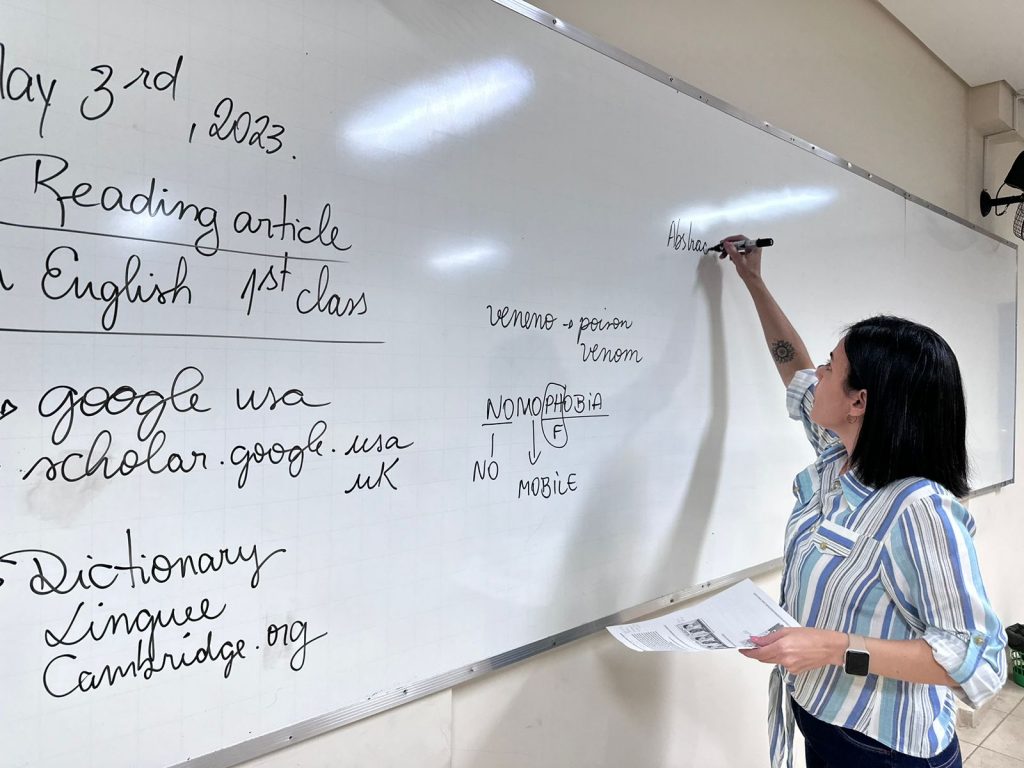 May 3rd, 2023.
Reading article
English 1st class
google usa
scholar.google.usa
uK
Dictionary
Linguee
Cambridge.org
veneno → poison
venom
NOMOPHOBiA
F
NO
MOBiLE
Abstrac